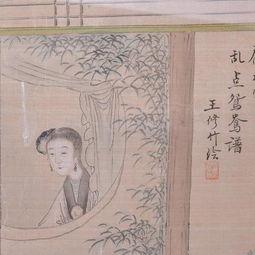 乱点鸳鸯谱
王修竹绘